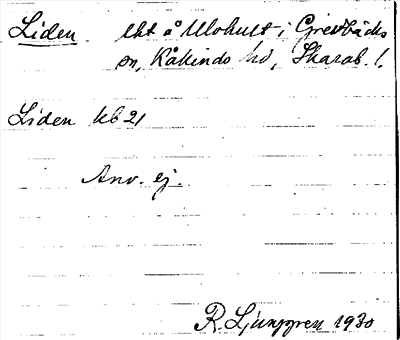 Liden lht å Ulohult i Grevbäcks
sn, Kåkinds hd, Skarab. l.
Liden kb 21
Anv. ej.
R. Ljunggren 1930